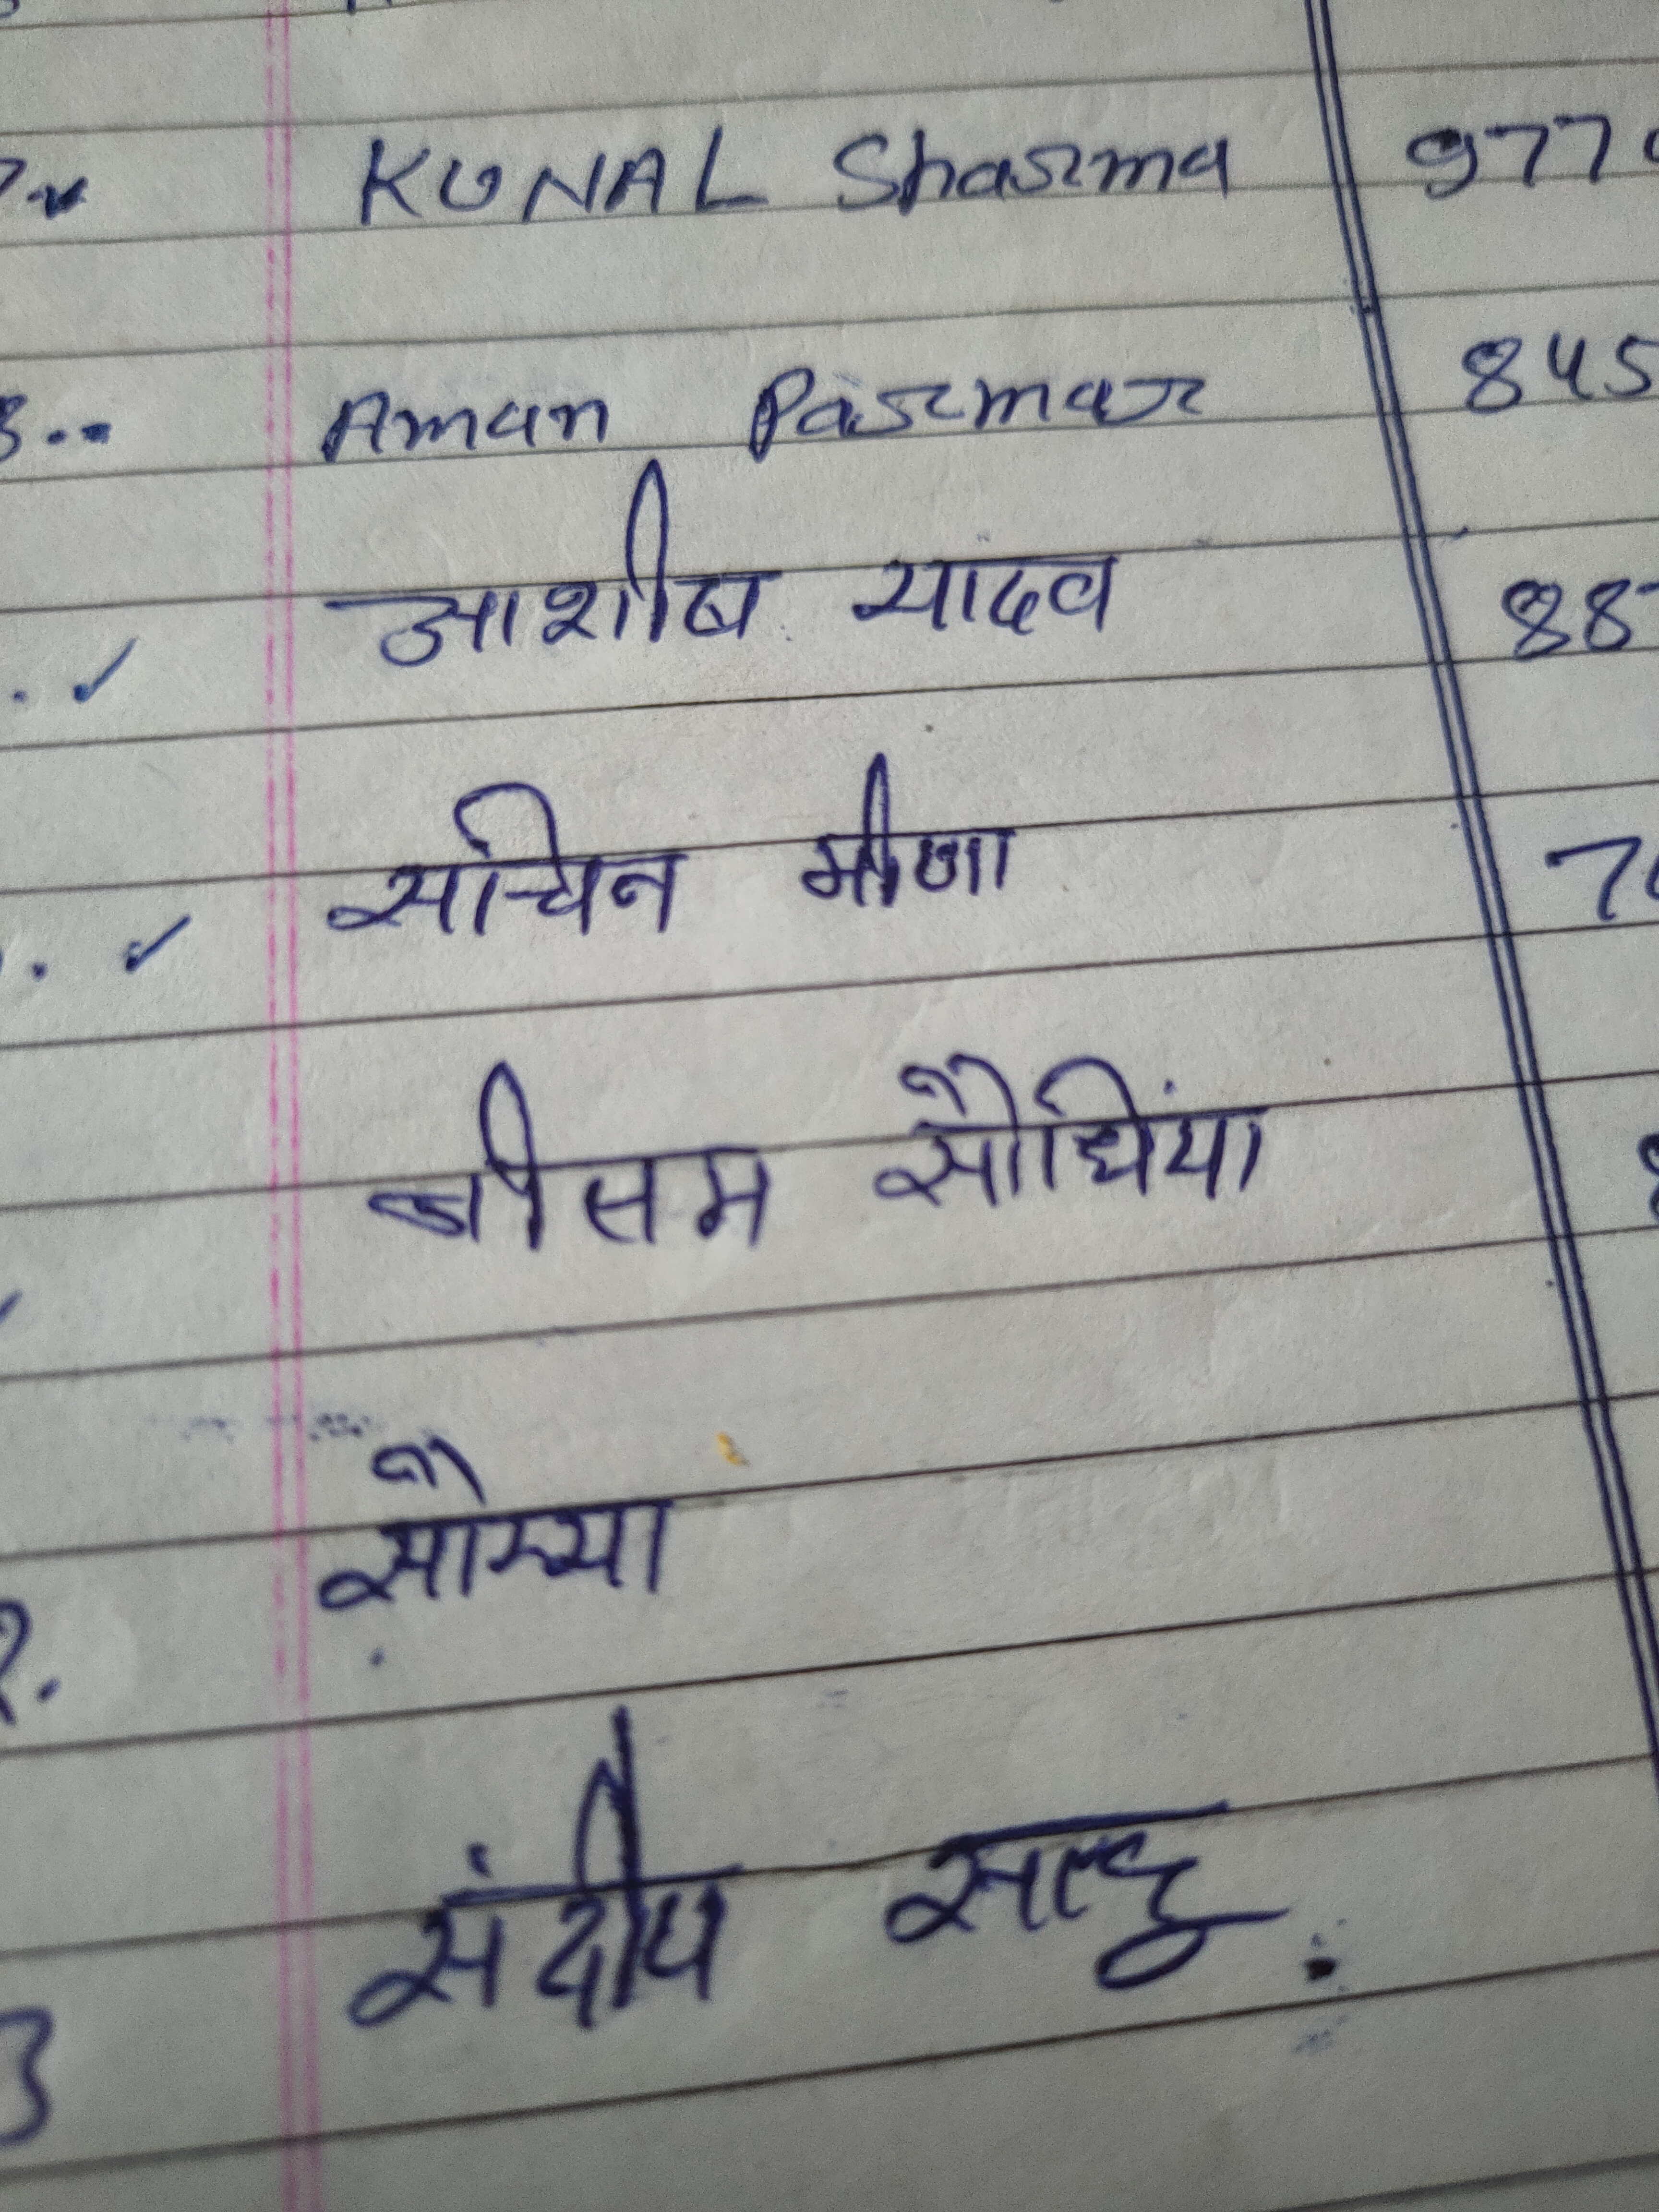 7. KUNAL Sharma 977
8.. Aman Parmar 845
. ✓ आशीष यादव 88
. ✓ सचिन मीणा 7
सौधिंया
2. सौम्या
3 संदीप साहू.